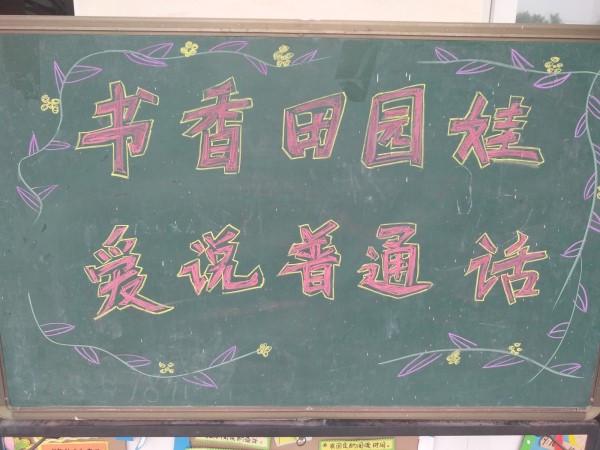 书香田园娃
爱说普通话